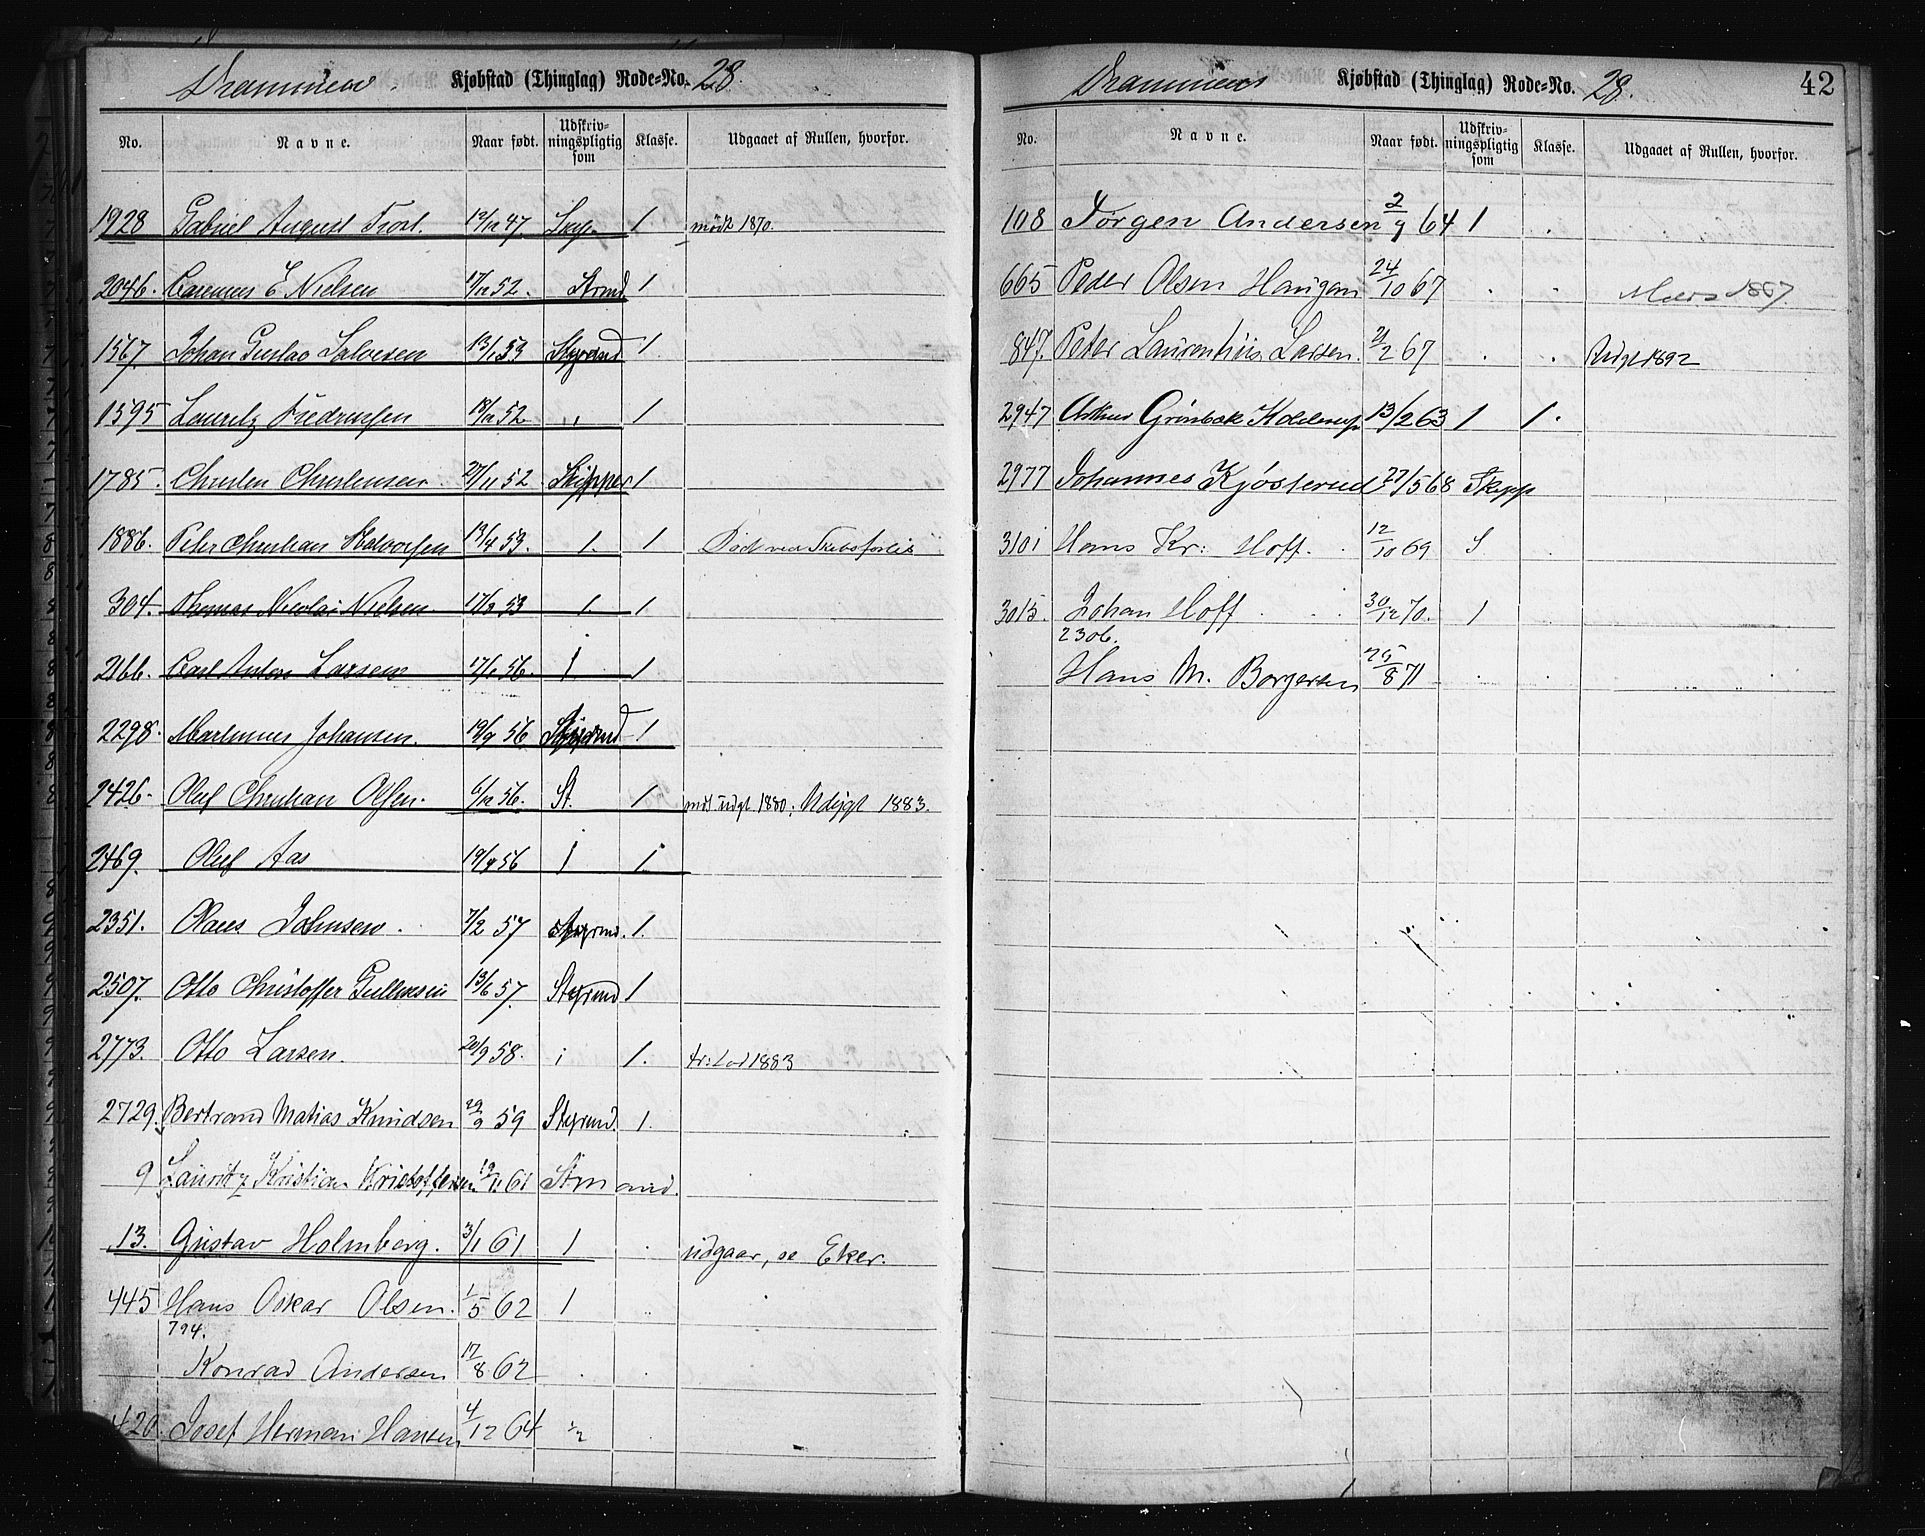 Drammen. Kjøbstad (Thinglag) Rode=No. 28.
No. Navne. Naar født. Udskriv-ningspligtig som Klasse. Udgaaet af Rullen, hvorfor.
1928 Gabriel August 12/12 47 Skip. 1. mødt 1870.
2046. E Nielsen 17/12 52. Strmd 1
1567. Johan Gustav Salvesen 13/1 53 Styrmd 1.
1595 Lauritz Fredriksen 18/12 52. " 1
1785. Christen Christensen 27/11 52 Skipper 1
1886. Peter Christian Halvorsen 19/4 53. 1. 1 Død ved Skibsforlis
304. Thomas Nicolai Nielsen 17/3 53 1. 1
2166. Carl Anton Larsen 17/1 56. 1 1
2298. Martinius Johansen. 19/9 56 Styrmd 1
2426. Oluf Christian Olsen. 6/12 56. St. 1 mdl udgt 1880. Udygt 1883.
2469. Oluf Aas 19/4 56 1 1
2351. Claus Johnsen. 7/2 57 Styrmd. 1.
2507. Otto Christoffer Gullicksen 13/6 57. Styrmd 1
2773. Otto Larsen. 20/9 58. 1 1. 1883
2729. Bertrand Matias Knudsen 29/9 59 Styrmd. 1.
9 Lauritz Kristian Kristoffersen 19/11 61 Strm and.
13. Gustav Holmberg. 3/1 61 1 . udgaar, se Eker.
445 Hans Oskar Olsen. 1/5 62 1
794.
Konrad Andersen 17/8 62 . .
420. Josef Herman Hansen 4/12 64 "
Drammen Kjøbstad (Thinglag) Rode=No. 28. 42
No. Navne. Naar født. Udskriv-ningspligtig som Klasse. Udgaaet af Rullen, hvorfor.
108 Jørgen Andersen 2/9 64 1 .
665 Peder Olsen Haugan 24/10 67 . . 1887
847. Peder Laurentius Larsen. 2/2 67 . . Udgt 1892
2947 Arthur Grønbek Kolderup 13/2 63 1 1.
2977 Johannes Kjøsterud 27/5 68 Skipp
3101 Hans Kr: Hoff. 12/10 69 S
3015. Johan Hoff 30/12 70. 1
2306.
Hans M. Borgersen 25/8 71 . .